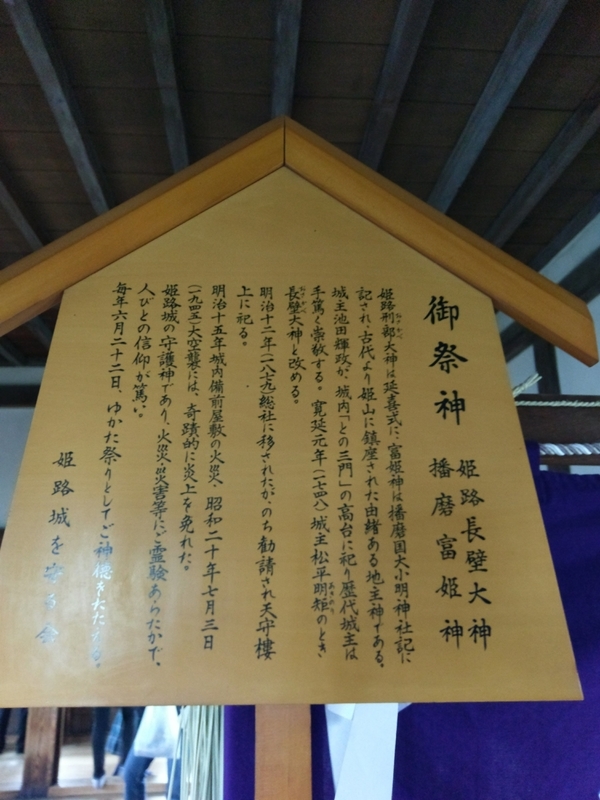 御祭神
姫路長壁大神
播磨富姫神
姫路刑部大神は延喜式に、富姫神は播磨国大小明神社記に
記され、古代より姫山に鎮座された由緒ある地主神である。
城主池田輝政が、城内「との三門」の高台に祀り歴代城主は
手篤く崇敬する。寛延元年(一七四八)城主松平明矩のとき
長壁大神と改める。
明治十二年(一八七九)総社に移されたが、のち勧請され天守樓
上に祀る。
明治十五年城内備前屋敷の火災、昭和二十年七月三日
(一九四五)大空襲には、奇蹟的に炎上を免れた。
姫路城の守護神であり、火災・災害等にご霊験あらたかで、
人びとの信仰が篤い。
毎年六月二十二日、ゆかた祭りとしてご神徳をたたえる。
姫路城を守る会